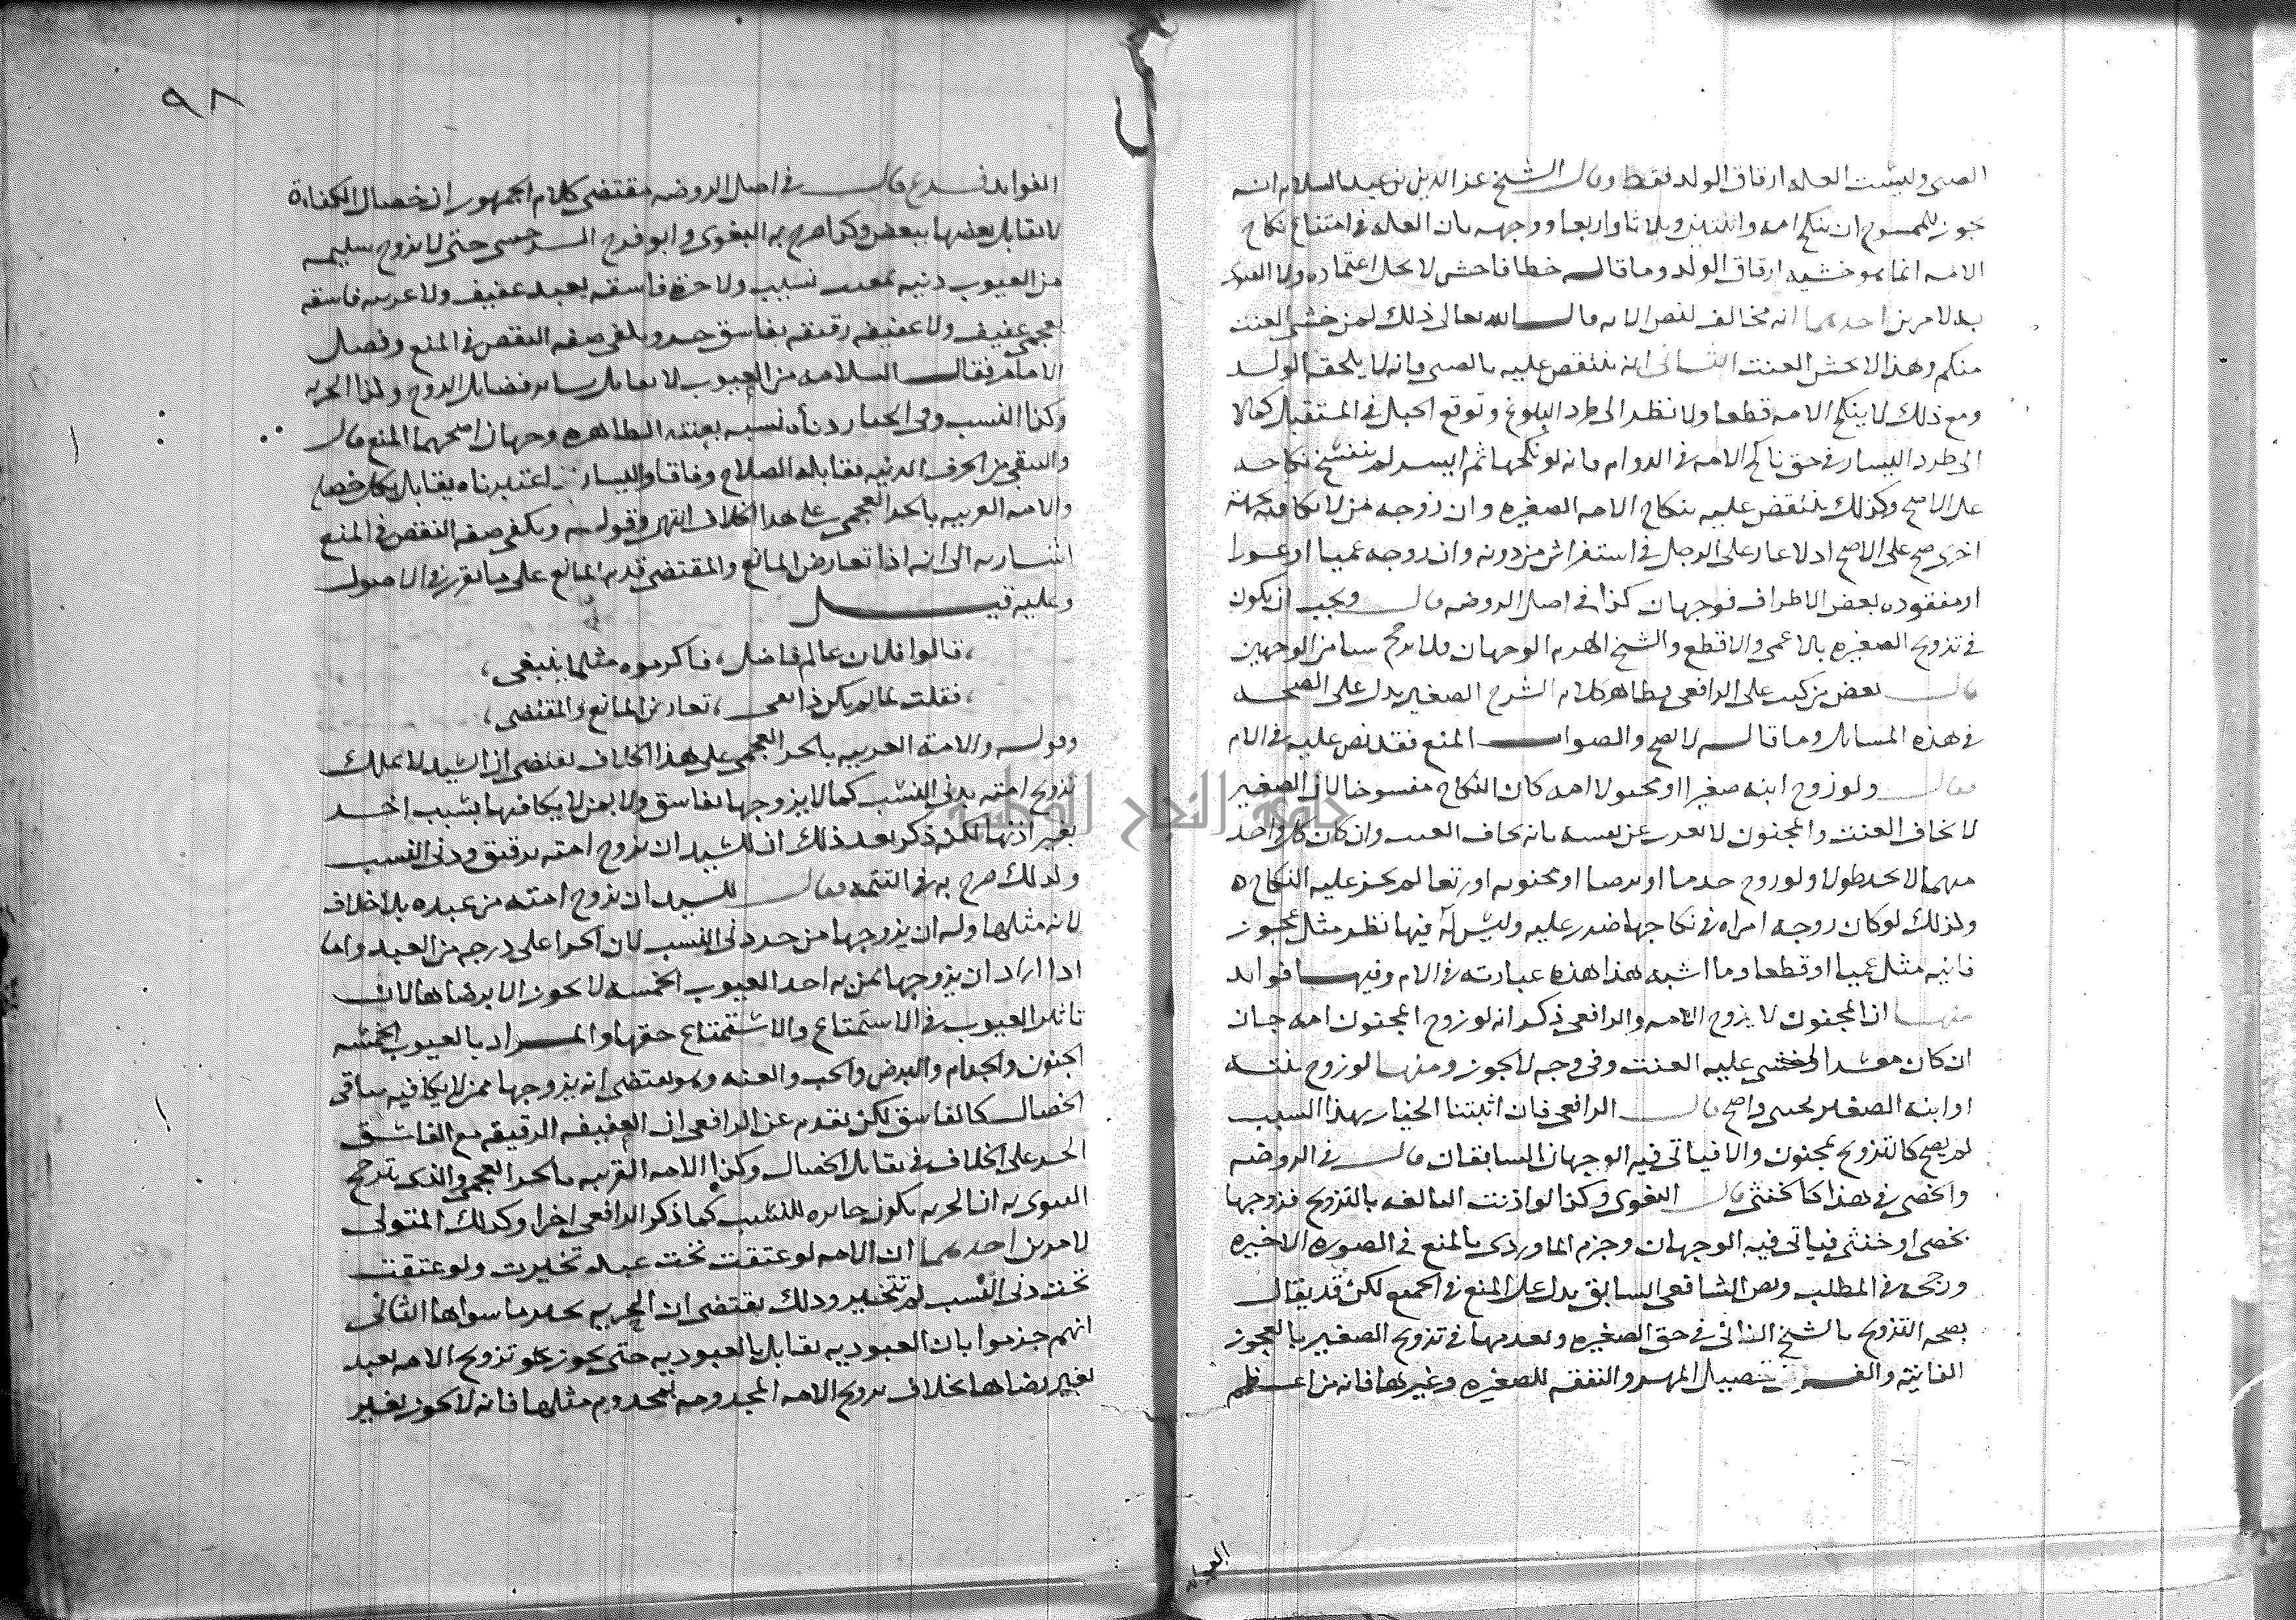 الصبي وليست العله ارقاق الولد فقط وقال الشيخ عز الدين بن عبد السلام انه
يجوز للممسوح ان ينكح امه واثنتين وثلاثا واربعا ووجهه بان العله في امتناع نكاح
الامه انما هو خشيه ارقاق الولد وما قاله خطا فاحش لا يحل اعتماده ولا العمل
به لامرين احدهما انه مخالف لنص الايه قال الله تعالى ذلك لمن خشي العنت
منكم وهذا لا يخش العنت الثاني انه ينتقض عليه بالصبي فانه لا يلحقه الولد
ومع ذلك لا ينكح الامه قطعا ولا نظر الى طرد البلوغ وتوقع الحبل في المستقبل كما لا
الى طرد اليسار في حق ناكح الامه في الدوام فانه لو نكحها ثم ايسر لم ينفسخ نكاحه
على الاصح وكذلك ينتقض عليه بنكاح الامه الصغيره وان زوجه من لا تكافئه بجهة
اخرى صح على الاصح اذ لا عار على الرجل في استفراش من دونه وان زوجه عميا او عورا
او مفقوده بعض الاطراف فوجهان كذا في اصل الروضه قال ويجب ان يكون
في تزويج الصغيره بالاعمى والاقطع والشيخ الهرم الوجهان ولم يرجح شيا من الوجهين
قال بعض من كتب على الرافعي وظاهر كلام الشرح الصغير يدل على الصحه
في هذه المسايل وما قاله لا يصح والصواب المنع فقد نص عليه في الام
فقال ولو زوج ابنه صغيرا او مجنونا امه كان النكاح مفسوخا لان الصغير
لا يخاف العنت والمجنون لا يعرب عن نفسه بانه يخاف العنت وان كان كل واحد
منهما لا يجد طولا ولو زوج جذما او برصا او مجنونه او رتقا لم يجز عليه النكاح ه
ولذلك لو كان زوجه امراه في نكاحها ضرر عليه وليس له فيها نظر مثل عجوز
فانيه مثل عميا او قطعا وما اشبه هذا هذه عبارته في الام وفيها فوايد
منها ان المجنون لا يزوج الامه والرافعي ذكر انه لو زوج المجنون امه جاز
ان كان معسرا وخشي عليه العنت وفي وجه لا يجوز ومنها لو زوج بنته
او ابنه الصغير بخنثى واضح قال الرافعي فان اثبتنا الخيار بهذا السبب
لم يصح كالتزويج بمجنون والا فياتي فيه الوجهان السابقان قال في الروضه
والخصي في هذا كالخنثى قال البغوي وكذا لو اذنت البالغه بالتزويج فزوجها
بخصي او خنثى فياتي فيه الوجهان وجزم الماوردي بالمنع في الصوره الاخيره
ورجحه في المطلب ونص الشافعي السابق يدل على المنع في الجميع لكن قد يقال
بصحه التزويج بالشيخ الفاني في حق الصغيره وبعدمها في تزويج الصغير بالعجوز
الفانيه والفرق تحصيل المهر والنفقه للصغيره وغيرها فانه من اعظم
العوايد
٩٨
الفوايد فرع قال في اصل الروضه مقتضى كلام الجمهور ان خصال الكفاءة
لا تقابل بعضها ببعض وكذا صرح به البغوي وابو فرج السرخسي حتى لا تزوج سليمه
من العيوب دنيه بمعيب نسيب ولا حره فاسقه بعبد عفيف ولا عربيه فاسقه
بعجمي عفيف ولا عفيفه رقيقه بفاسق حر ويكفي صفه النقص في المنع وفصل
الامام فقال السلامه من العيوب لا تقابل بساير فضايل الزوج ولذا الحريه
وكذا النسب وفي انجبار دناءه نسبه بعفته الظاهره وجهان اصحهما المنع قال
والتنقي من الحرف الدنيه مقابله الصلاح وفاقا واليسار ان اعتبرناه يقابل بكل خصله
والامه العربيه بالحر العجمي على هذا الخلاف انتهى وقوله ويكفي صفه النقص في المنع
اشار به الى انه اذا تعارض المانع والمقتضي قدم المانع على ما تقرر في الاصول
وعليه قيل
، قالوا فلان عالم فاضل ، فاكرموه مثلما ينبغي ،
، فقلت لما لم يكن ذا تقى ، تعارض المانع والمقتضي ،
وقوله والامه العربيه بالحر العجمي على هذا الخلاف يقتضي ان السيد لا يملك
تزويج امته بدني النسب كما لا يزوجها بفاسق ولا بمن لا يكافئها بسبب اخر
بغير اذنها لكنه ذكر بعد ذلك ان للسيد ان يزوج امته برقيق ودني النسب
ولذلك صرح به في التتمه فقال للسيد ان يزوج امته من عبده بلا خلاف
لانه مثلها وله ان يزوجها من حر دني النسب لان الحر اعلى درجه من العبد واما
اذا اراد ان يزوجها بمن به احد العيوب الخمسه لا يجوز الا برضاها لان
تاثير العيوب في الاستمتاع والاستمتاع حقها والمراد بالعيوب الخمسه
الجنون والجذام والبرص والجب والعنه وهو يقتضي انه يزوجها ممن لا يكافيه بباقي
الخصال كالفاسق لكن تقدم عن الرافعي ان العفيفه الرقيقه مع الفاسق
الحر على الخلاف في تقابل الخصال وكذا الامه العربيه بالحر العجمي والذي يترجح
التسويه ان الحريه تكون جابره للنسب كما ذكر الرافعي اخرا وكذلك المتولي
لامرين احدهما ان الامه لو عتقت تحت عبد تخيرت ولو عتقت
تحت دني النسب لم تتخير وذلك يقتضي ان الحريه تجبر ما سواها الثاني
انهم جزموا بان العبوديه تقابل بالعبوديه حتى يجوز له تزويج الامه بعبد
بغير رضاها بخلاف تزويج الامه المجذومه بمجذوم مثلها فانه لا يجوز بغير